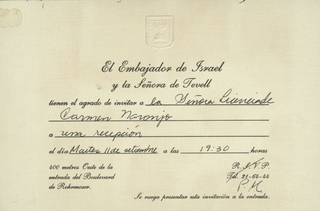 El Embajador de Israel
y la Señora de Tevell
tienen el agrado de invitar a la Señora Licenciada
Carmen Naranjo
a una recepción
el día Martes 11 de setiembre a las 19:30 horas
400 metros Oeste de la
entrada del Boulevard
de Rohrmoser.
R.S.V.P.
Tel.
P.M.
Se ruega presentar esta invitación a la entrada.